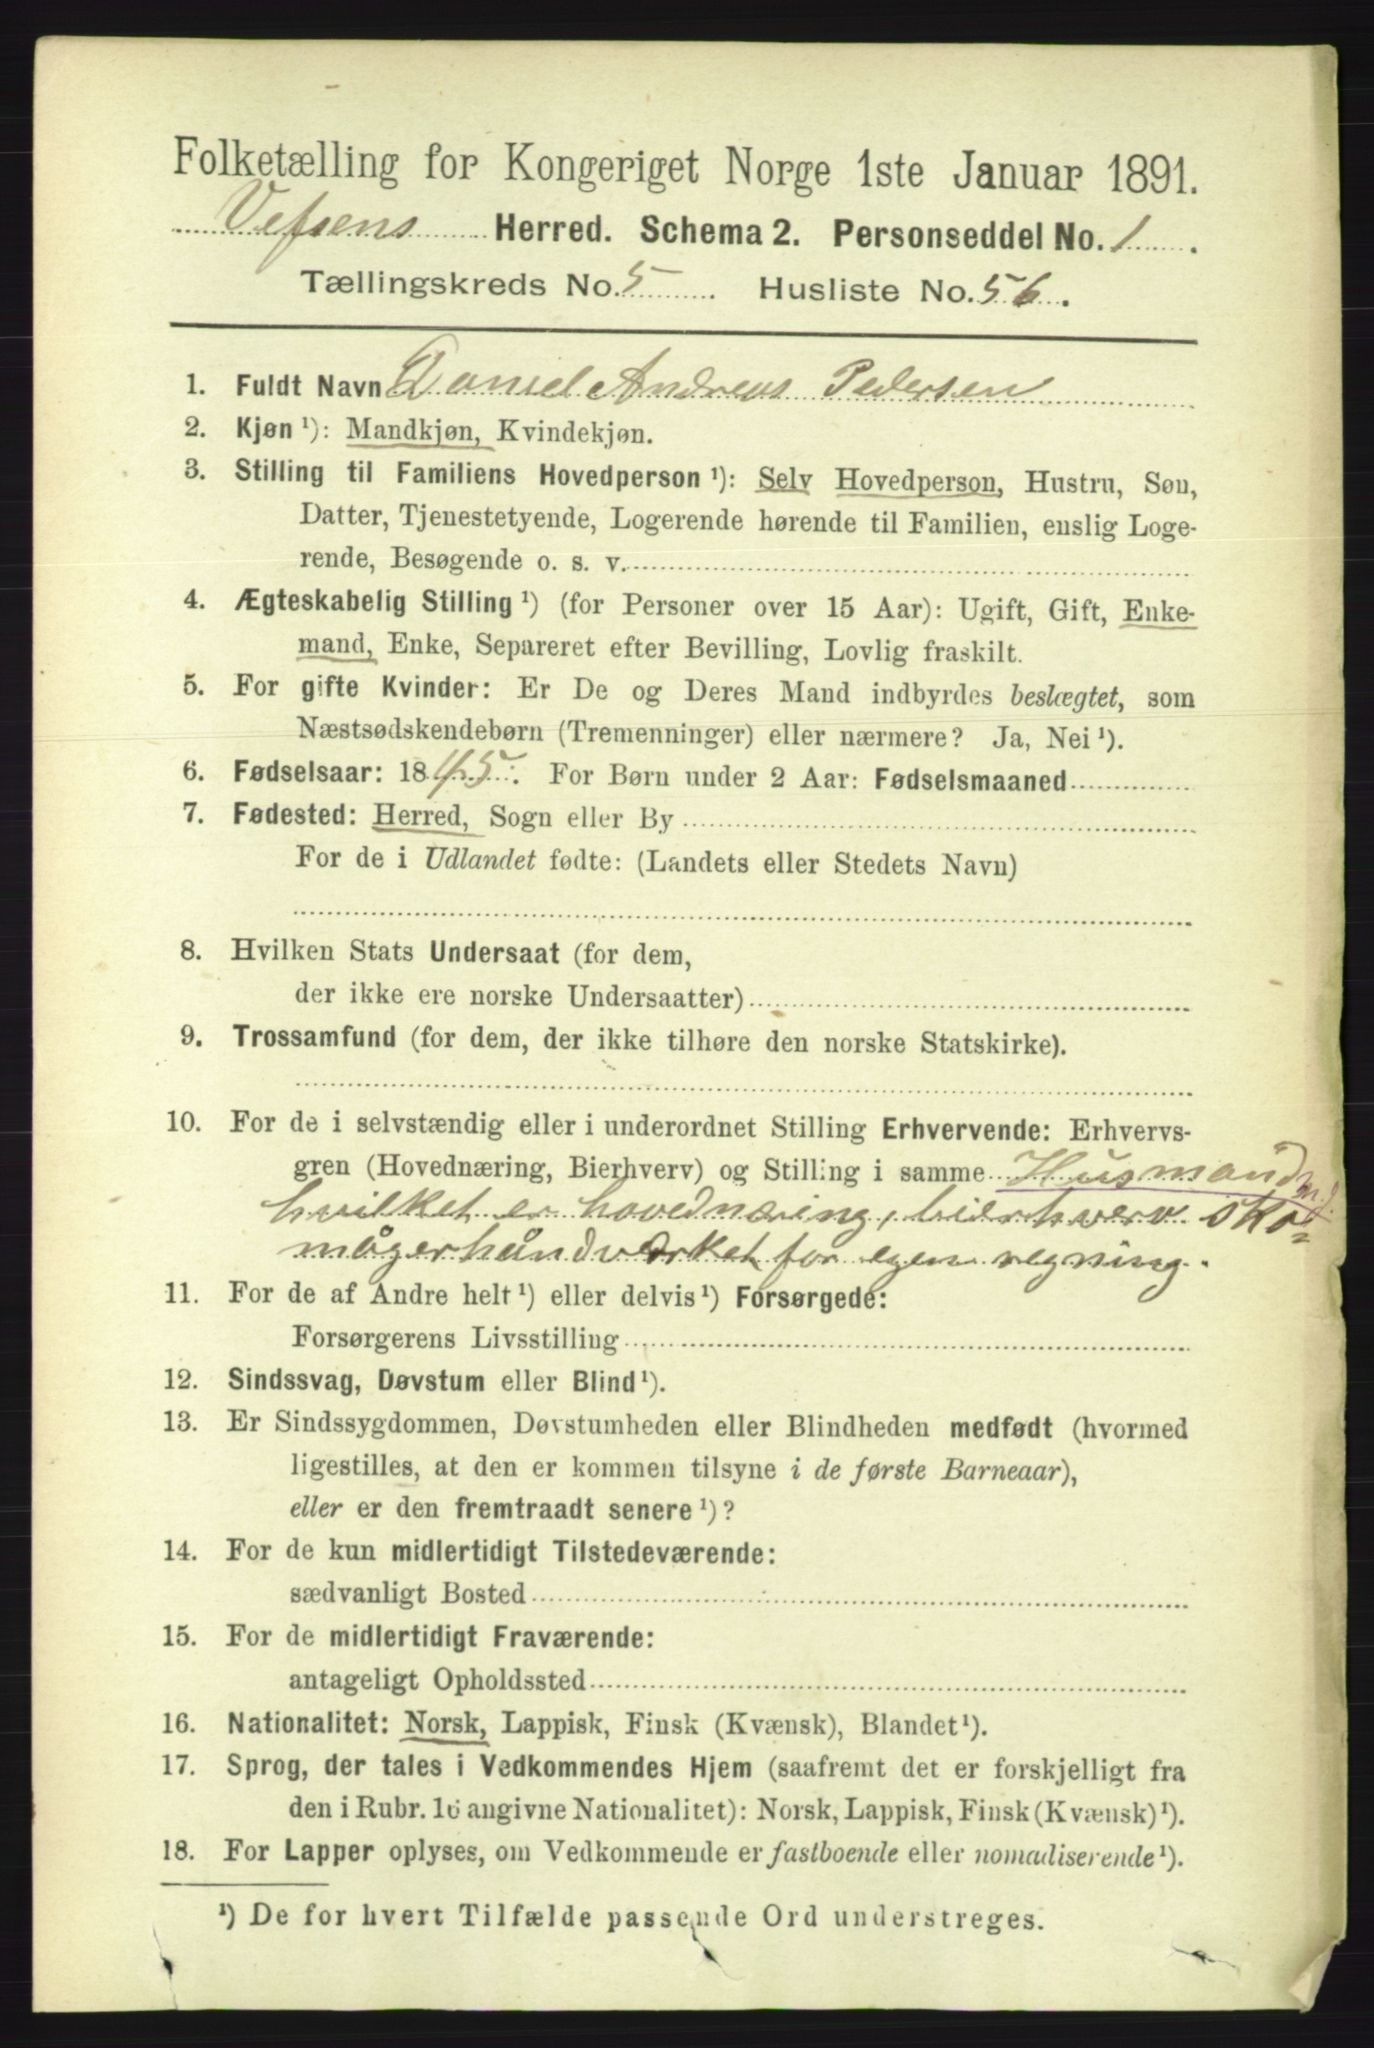 Folketælling for Kongeriget Norge 1ste Januar 1891.
Vefsens Herred. Schema 2. Personseddel No. 1.
Tællingskreds No. 5. Husliste No. 56.
1. Fuldt Navn Daniel Andreas Pedersen
2. Kjøn ¹): Mandkjøn, Kvindekjøn.
3. Stilling til Familiens Hovedperson ¹): Selv Hovedperson, Hustru, Søn,
Datter, Tjenestetyende, Logerende hørende til Familien, enslig Loge-
rende, Besøgende o. s. v.
4. Ægteskabelig Stilling ¹) (for Personer over 15 Aar): Ugift, Gift, Enke-
mand, Enke, Separeret efter Bevilling, Lovlig fraskilt.
5. For gifte Kvinder: Er De og Deres Mand indbyrdes beslægtet, som
Næstsødskendebørn (Tremenninger) eller nærmere? Ja, Nei ¹).
6. Fødselsaar: 1845. For Børn under 2 Aar: Fødselsmaaned
7. Fødested: Herred, Sogn eller By
For de i Udlandet fødte: (Landets eller Stedets Navn)
8. Hvilken Stats Undersaat (for dem,
der ikke ere norske Undersaatter)
9. Trossamfund (for dem, der ikke tilhøre den norske Statskirke).
10. For de i selvstændig eller i underordnet Stilling Erhvervende: Erhvervs-
gren (Hovednæring, Bierhverv) og Stilling i samme Husmand m. J.
hvilket er hovednæring, bierhverv sko=
magerhåndværket for egen regning.
11. For de af Andre helt ¹) eller delvis ¹) Forsørgede:
Forsørgerens Livsstilling
12. Sindssvag, Døvstum eller Blind ¹).
13. Er Sindssygdommen, Døvstumheden eller Blindheden medfødt (hvormed
ligestilles, at den er kommen tilsyne i de første Barneaar),
eller er den fremtraadt senere ¹)?
14. For de kun midlertidigt Tilstedeværende:
sædvanligt Bosted
15. For de midlertidigt Fraværende:
antageligt Opholdssted
16. Nationalitet: Norsk, Lappisk, Finsk (Kvænsk), Blandet ¹).
17. Sprog, der tales i Vedkommendes Hjem (saafremt det er forskjelligt fra
den i Rubr. 16 angivne Nationalitet): Norsk, Lappisk, Finsk (Kvænsk) ¹).
18. For Lapper oplyses, om Vedkommende er fastboende eller nomadiserende ¹).
¹) De for hvert Tilfælde passende Ord understreges.